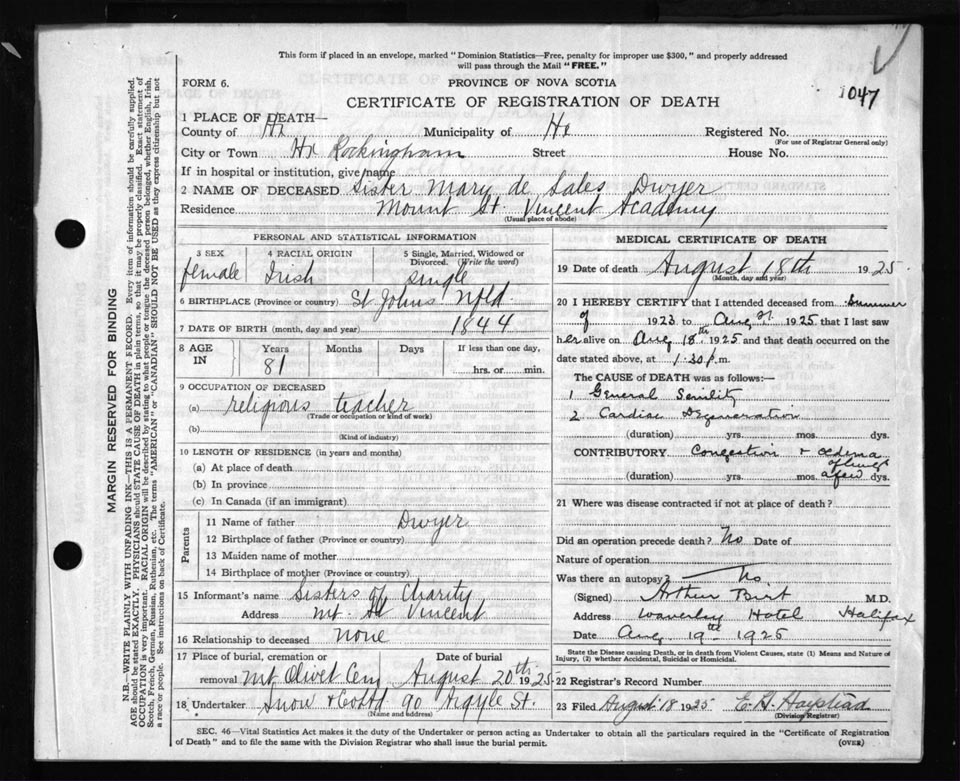 This form if placed in an envelope, marked "Dominion Statistics—Free, penalty for improper use $300," and properly addressed
will pass through the Mail "FREE."
FORM 6.
PROVINCE OF NOVA SCOTIA
CERTIFICATE OF REGISTRATION OF DEATH
1047
1 PLACE OF DEATH—
County of Hx Municipality of Hx Registered No.
(For use of Registrar General only)
City or Town Hx Rockingham Street House No.
If in hospital or institution, give name
2 NAME OF DECEASED Sister Mary de Sales Dwyer
Residence Mount St. Vincent Academy
(Usual place of abode)
PERSONAL AND STATISTICAL INFORMATION
3 SEX 4 RACIAL ORIGIN 5 Single, Married, Widowed or
Divorced. (Write the word)
female Irish single
6 BIRTHPLACE (Province or country) St Johns Nfld.
7 DATE OF BIRTH (month, day and year) 1844
8 AGE IN Years Months Days If less than one day,
81 hrs. or min.
9 OCCUPATION OF DECEASED
(a) religious teacher
(Trade or occupation or kind of work)
(b)
(Kind of industry)
10 LENGTH OF RESIDENCE (in years and months)
(a) At place of death
(b) In province
(c) In Canada (if an immigrant)
Parents
11 Name of father Dwyer
12 Birthplace of father (Province or country)
13 Maiden name of mother
14 Birthplace of mother (Province or country)
15 Informant's name Sisters of Charity
Address Mt. St Vincent
16 Relationship to deceased none
17 Place of burial, cremation or Date of burial
removal Mt Olivet Cem August 20th 1925
18 Undertaker Snow & Co Ltd 90 Argyle St.
(Name and address)
MEDICAL CERTIFICATE OF DEATH
19 Date of death August 18th 1925
(Month, day and year)
20 I HEREBY CERTIFY that I attended deceased from Summer
of 1923 to Aug 1925 that I last saw
her alive on Aug 18th 1925 and that death occurred on the
date stated above, at 1.30 p.m.
The CAUSE OF DEATH was as follows:—
1 General Senility
2 Cardiac Degeneration
(duration) yrs. mos. dys.
CONTRIBUTORY Congestion & oedema
of lungs
(duration) yrs. mos. a few dys.
21 Where was disease contracted if not at place of death?
Did an operation precede death? No Date of
Nature of operation
Was there an autopsy? No
(Signed) Arthur Birt M.D.
Address Waverley Hotel Halifax
Date Aug 19th 1925
State the Disease causing Death, or in death from Violent Causes, state (1) Means and Nature of
Injury, (2) whether Accidental, Suicidal or Homicidal.
22 Registrar's Record Number
23 Filed August 18 1925
(Division Registrar)
SEC. 46—Vital Statistics Act makes it the duty of the Undertaker or person acting as Undertaker to obtain all the particulars required in the "Certificate of Registration
of Death" and to file the same with the Division Registrar who shall issue the burial permit. (OVER)
MARGIN RESERVED FOR BINDING
N.B.—WRITE PLAINLY WITH UNFADING INK—THIS IS A PERMANENT RECORD. Every item of information should be carefully supplied.
AGE should be stated EXACTLY. PHYSICIANS should STATE CAUSE OF DEATH in plain terms, so that it may be properly classified. Exact statement of
OCCUPATION is very important. RACIAL ORIGIN will be described by stating to what people or tongue the deceased person belonged, whether English, Irish,
Scotch, French, German, Russian, Ruthenian, etc. The terms "AMERICAN" or "CANADIAN" SHOULD NOT BE USED as they express citizenship but not
a race or people. See instructions on back of Certificate.